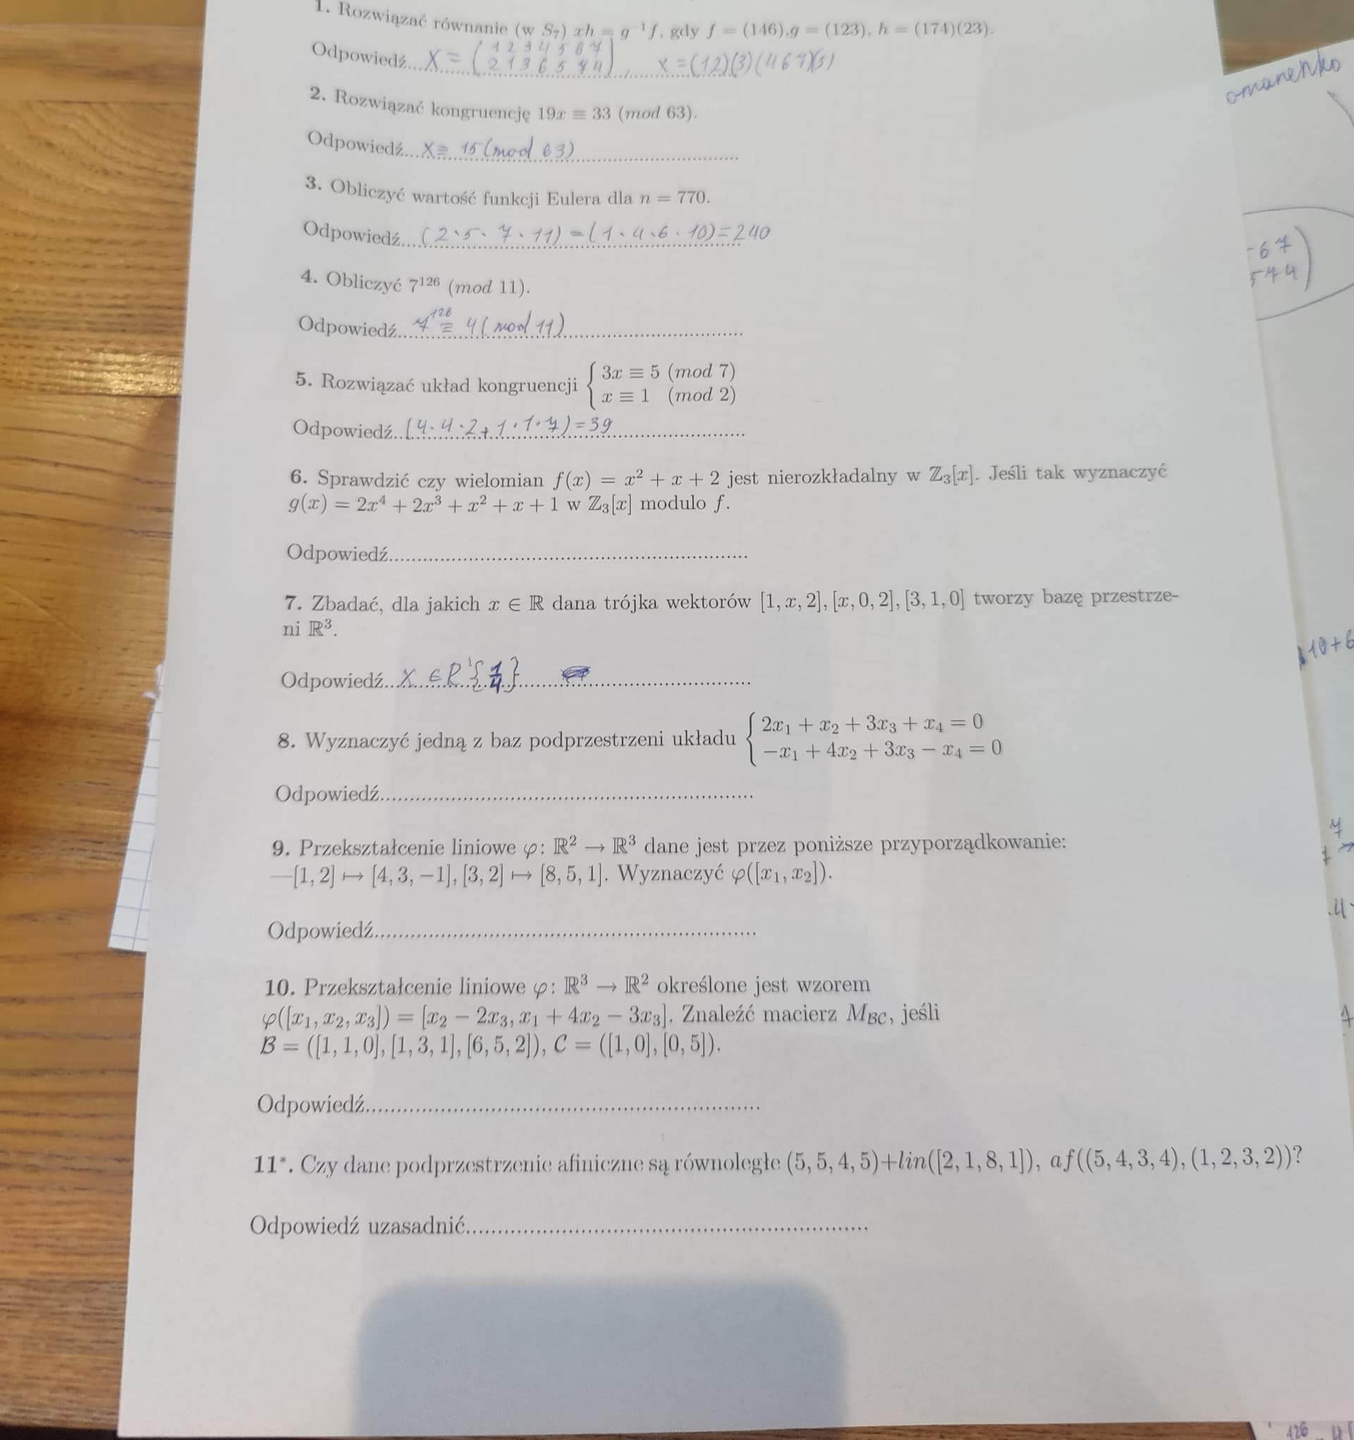 1. Rozwiązać równanie (w S₇) xh = g⁻¹f, gdy f = (146), g = (123), h = (174)(23).
Odpowiedź... X = (1 2 3 4 5 6 7
2 1 3 6 5 7 4), x = (12)(3)(467)(5)
2. Rozwiązać kongruencję 19x ≡ 33 (mod 63).
Odpowiedź... X ≡ 15 (mod 63)
3. Obliczyć wartość funkcji Eulera dla n = 770.
Odpowiedź... (2·5·7·11) = (1·4·6·10) = 240
4. Obliczyć 7¹²⁶ (mod 11).
Odpowiedź... 7¹²⁶ ≡ 4 (mod 11)
5. Rozwiązać układ kongruencji { 3x ≡ 5 (mod 7)
x ≡ 1 (mod 2)
Odpowiedź... (4·4·2+1·1·7) = 39
6. Sprawdzić czy wielomian f(x) = x² + x + 2 jest nierozkładalny w ℤ₃[x]. Jeśli tak wyznaczyć
g(x) = 2x⁴ + 2x³ + x² + x + 1 w ℤ₃[x] modulo f.
Odpowiedź...
7. Zbadać, dla jakich x ∈ ℝ dana trójka wektorów [1, x, 2], [x, 0, 2], [3, 1, 0] tworzy bazę przestrze-
ni ℝ³.
Odpowiedź... X ∈ R\{1/4}
8. Wyznaczyć jedną z baz podprzestrzeni układu { 2x₁ + x₂ + 3x₃ + x₄ = 0
−x₁ + 4x₂ + 3x₃ − x₄ = 0
Odpowiedź...
9. Przekształcenie liniowe φ: ℝ² → ℝ³ dane jest przez poniższe przyporządkowanie:
—[1, 2] ↦ [4, 3, −1], [3, 2] ↦ [8, 5, 1]. Wyznaczyć φ([x₁, x₂]).
Odpowiedź...
10. Przekształcenie liniowe φ: ℝ³ → ℝ² określone jest wzorem
φ([x₁, x₂, x₃]) = [x₂ − 2x₃, x₁ + 4x₂ − 3x₃]. Znaleźć macierz M_BC, jeśli
B = ([1, 1, 0], [1, 3, 1], [6, 5, 2]), C = ([1, 0], [0, 5]).
Odpowiedź...
11*. Czy dane podprzestrzenie afiniczne są równoległe (5, 5, 4, 5)+lin([2, 1, 8, 1]), af((5, 4, 3, 4), (1, 2, 3, 2))?
Odpowiedź uzasadnić...
omanenko
67
544)
10+6
7
4
126